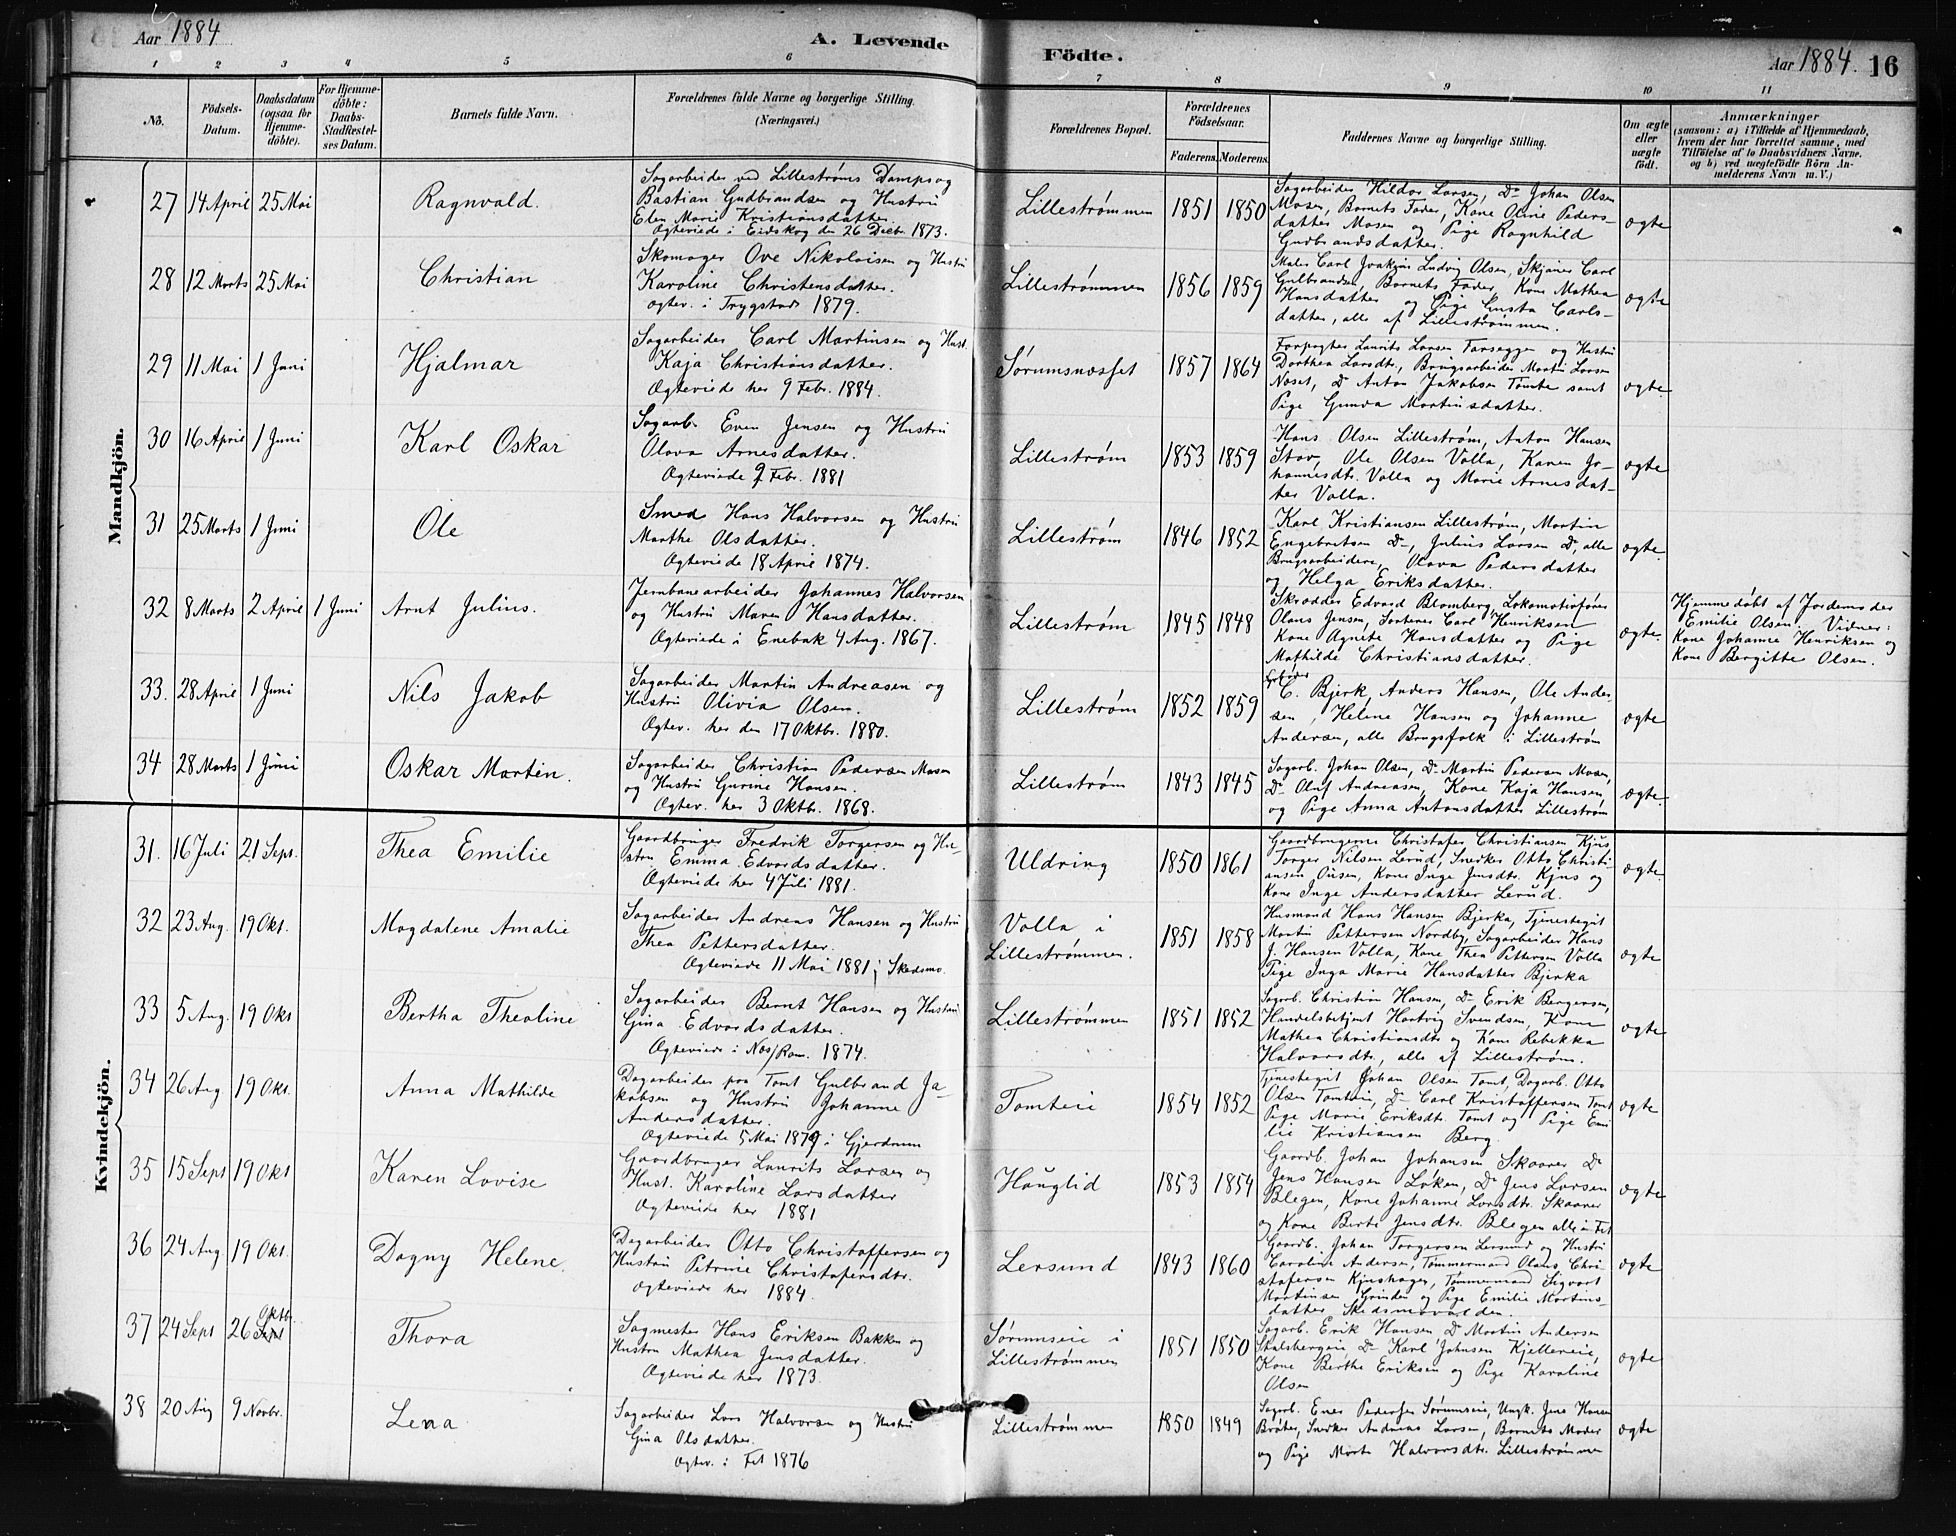 Aar 1884
A. Levende
Födte.
Aar 1884. 16
1 2 3 4 5 6 7 8 9 10 11
No.
Födsels-
Datum.
Daabsdatum
(ogsaa for
Hjemme-
døbte).
For Hjemme-
döbte:
Daabs-
Stadfæstel-
ses Datum.
Barnets fulde Navn.
Forældrenes fulde Navne og borgerlige Stilling.
(Næringsvei.)
Forældrenes Bopæl.
Forældrenes
Födselsaar.
Faderens. Moderens.
Faddernes Navne og borgerlige Stilling.
Om ægte
eller
uægte
født.
Anmærkninger
(saasom: a) i Tilfælde af Hjemmedaab,
hvem der har forrettet samme, med
Tilföielse af to Daabsvidners Navne.
og b) ved uægtefödte Börn An-
melderens Navn m. V.)
Mandkjön.
27 14 April 25 Mai
Ragnvald.
Sagarbeider ved Lillestrøms Dampsag
Bastian Gudbrandsen og Hustru
Elen Marie Kristiansdatter.
Ægteviede i Eidskog den 26 Decbr. 1873.
Lillestrømmen 1851 1850
Sagarbeider Hildor Larsen, Do Johan Olsen
Mosen, Barnets Fader, Kone Oline Peders-
datter Mosen og Pige Ragnhild
Gudbrandsdatter.
ægte
28 12 Marts 25 Mai
Christian
Skomager Ove Nikolaisen og Hustru
Karoline Christensdatter.
ægtev. i Trygstad 1879.
Lillestrømmen 1856 1859
Maler Carl Joakim Ludvig Olsen, Skjøner Carl
Gulbrandsen, Barnets Fader, Kone Mathea
Hansdatter og Pige Gusta Carls-
datter, alle af Lillestrømmen.
ægte
29 11 Mai 1 Juni
Hjalmar
Sagarbeider Carl Martinsen og Hust.
Kaja Christiansdatter.
Ægteviede her 9 Febr. 1884.
Sørumsnæsset 1857 1864
Forpagter Laurits Larsen Farseggen og Hustru
Dorthea Larsdtr., Brugsarbeider Martin Larsen
Næset, Do Anton Jakobsen Tomte samt
Pige Gunda Martinsdatter.
ægte
30 16 April 1 Juni
Karl Oskar
Sagarb. Even Jensen og Hustru
Olava Arnesdatter.
Ægteviede 9 Febr. 1881
Lillestrøm 1853 1859
Hans Olsen Lillestrøm, Anton Hansen
Stav, Ole Olsen Volla, Karen Jo-
hannesdtr. Volla og Marie Arnesdat-
ter Volla.
ægte
31 25 Marts 1 Juni
Ole
Smed Hans Halvorsen og Hustru
Marthe Olsdatter.
Ægteviede 18 April 1874.
Lillestrøm 1846 1852
Karl Kristiansen Lillestrøm, Martin
Engebretsen Do, Julius Larsen Do, alle
Brugsarbeidere, Olava Pedersdatter
og Helga Eriksdatter.
ægte
32 8 Marts 2 April 1 Juni
Arnt Julius.
Jernbanearbeider Johannes Halvorsen
og Hustru Maren Hansdatter.
Ægteviede i Enebak 4 Aug. 1867.
Lillestrøm 1845 1848
Skrædder Edvard Blomberg, Lokomotivfører
Olaus Jensen, Sorterer Carl Henriksen
Kone Agnete Hansdatter og Pige
Mathilde Christiansdatter.
ægte.
Hjemmedøbt af Jordemoder
Emilie Olsen. Vidner:
Kone Johanne Henriksen og
Kone Bergitte Olsen.
33. 28 April 1 Juni
Nils Jakob
Sagarbeider Martin Andreasen og
Hustru Olivia Olsen.
Ægtev. her den 17 Oktbr. 1880.
Lillestrøm 1852 1859
C. Bjerk, Anders Hansen, Ole Ander-
sen, Helene Hansen og Johanne
Andersen, alle Brugsfolk i Lillestrøm
ægte
34 28 Marts 1 Juni
Oskar Martin.
Sagarbeider Christian Pedersen Mosen
og Hustru Gurine Hansen.
Ægtev. her 3 Oktbr. 1868.
Lillestrøm 1843 1845
Sagarb. Johan Olsen, Do Martin Pedersen Mosen,
Do Oluf Andreasen, Kone Kaja Hansen
og Pige Anna Antonsdatter Lillestrøm
ægte.
Kvindekjön.
31. 16 Juli 21 Sept.
Thea Emilie
Gaardbruger Fredrik Torgersen og Hu-
stru Emma Edvardsdatter.
Ægteviede her 4 Juli 1881.
Uldring 1850 1861
Gaardbrugerne Christofer Christiansen Kjus
Torger Nilsen Lerud, Snedker Otto Christi-
ansen Ousen, Kone Inge Jensdtr. Kjus og
Kone Inge Andersdatter Lerud.
ægte.
32 23 Aug. 19 Okt.
Magdalene Amalie
Sagarbeider Andreas Hansen og Hustru
Thea Pettersdatter.
Ægteviede 11 Mai 1881 i Skedsmo.
Volla i
Lillestrømmen. 1851 1858
Husmand Hans Hansen Bjerka, Tjenestegut
Martin Pettersen Nordby, Sagarbeider Hans
J. Hansen Volla, Kone Thea Pettersen Volla
Pige Inga Marie Hansdatter Bjerka
ægte
33 5 Aug. 19 Okt
Bertha Theoline
Sagarbeider Bernt Hansen og Hustru
Gina Edvardsdatter.
Ægteviede i Næs/Rom. 1874.
Lillestrømmen 1851 1852
Sagarb. Christian Hansen, Do Erik Bergersen,
Handelsbetjent Hartvig Svendsen, Kone
Mathea Christiansdtr og Kone Rebekka
Halvorsdtr., alle af Lillestrøm.
ægte
34 26 Aug 19 Okt.
Anna Mathilde
Dagarbeider paa Tomt Gulbrand Ja-
kobsen og Hustru Johanne
Andersdatter.
Ægteviede 5 Mai 1879 i Gjerdrum
Tomteie 1854 1852
Tjenestegut Johan Olsen Tomt, Dagarb. Otto
Olsen Tomteie, Do Carl Kristoffersen Tomt
Pige Marie Eriksdtr Tomt og Pige Emi
lie Kristiansen Berg.
ægte
35 15 Sept 19 Okt
Karen Lovise
Gaardbruger Laurits Larsen og
Hust. Karoline Larsdatter
Ægteviede her 1881
Hauglid 1853 1854
Gaardb. Johan Johansen Skaarer Do
Jens Hansen Løken, Do Jens Larsen
Blegen, Kone Johanne Larsdtr. Skaarer
og Kone Berte Jensdtr. Blegen alle i Fet
ægte
36 24 Aug. 19 Okt.
Dagny Helene.
Dagarbeider Otto Christoffersen og
Hustru Petrine Christofersdtr.
Ægteviede her 1884.
Lersund 1843 1860
Gaardb. Johan Torgersen Lersund og Hustru
Caroline Andersen, Tømmermand Olaus Chri-
stofersen Kjushagen, Tømmermand Sigvart
Martinsen Grinden og Pige Emilie Martins-
datter Skedsmovolden.
ægte
37 24 Sept 26 Oktbr. Sept
Thora
Sagmester Hans Eriksen Bakken og
Hustru Mathea Jensdatter.
Ægteviede her 1873.
Sørumseie i
Lillestrømmen 1851 1850
Sagarb. Erik Hansen, Do Martin Andersen
Stalsbergeie, Do Karl Johnsen Kjellereie,
Kone Berthe Eriksen og Pige Karoline
Olsen
ægte
38 20 Aug 9 Novbr.
Lena
Sagarbeider Lars Halvorsen og Hustru
Gina Olsdatter.
Ægtev. i Fet 1876
Lillestrømmen 1850 1849
Sagarb. Ener Pedersen Sørumseie, Ungk. Jens Hansen
Bråten, Snedker Andreas Larsen, Barnets Moder
og Pige Marte Halvorsdtr. Lillestrømmen
ægte